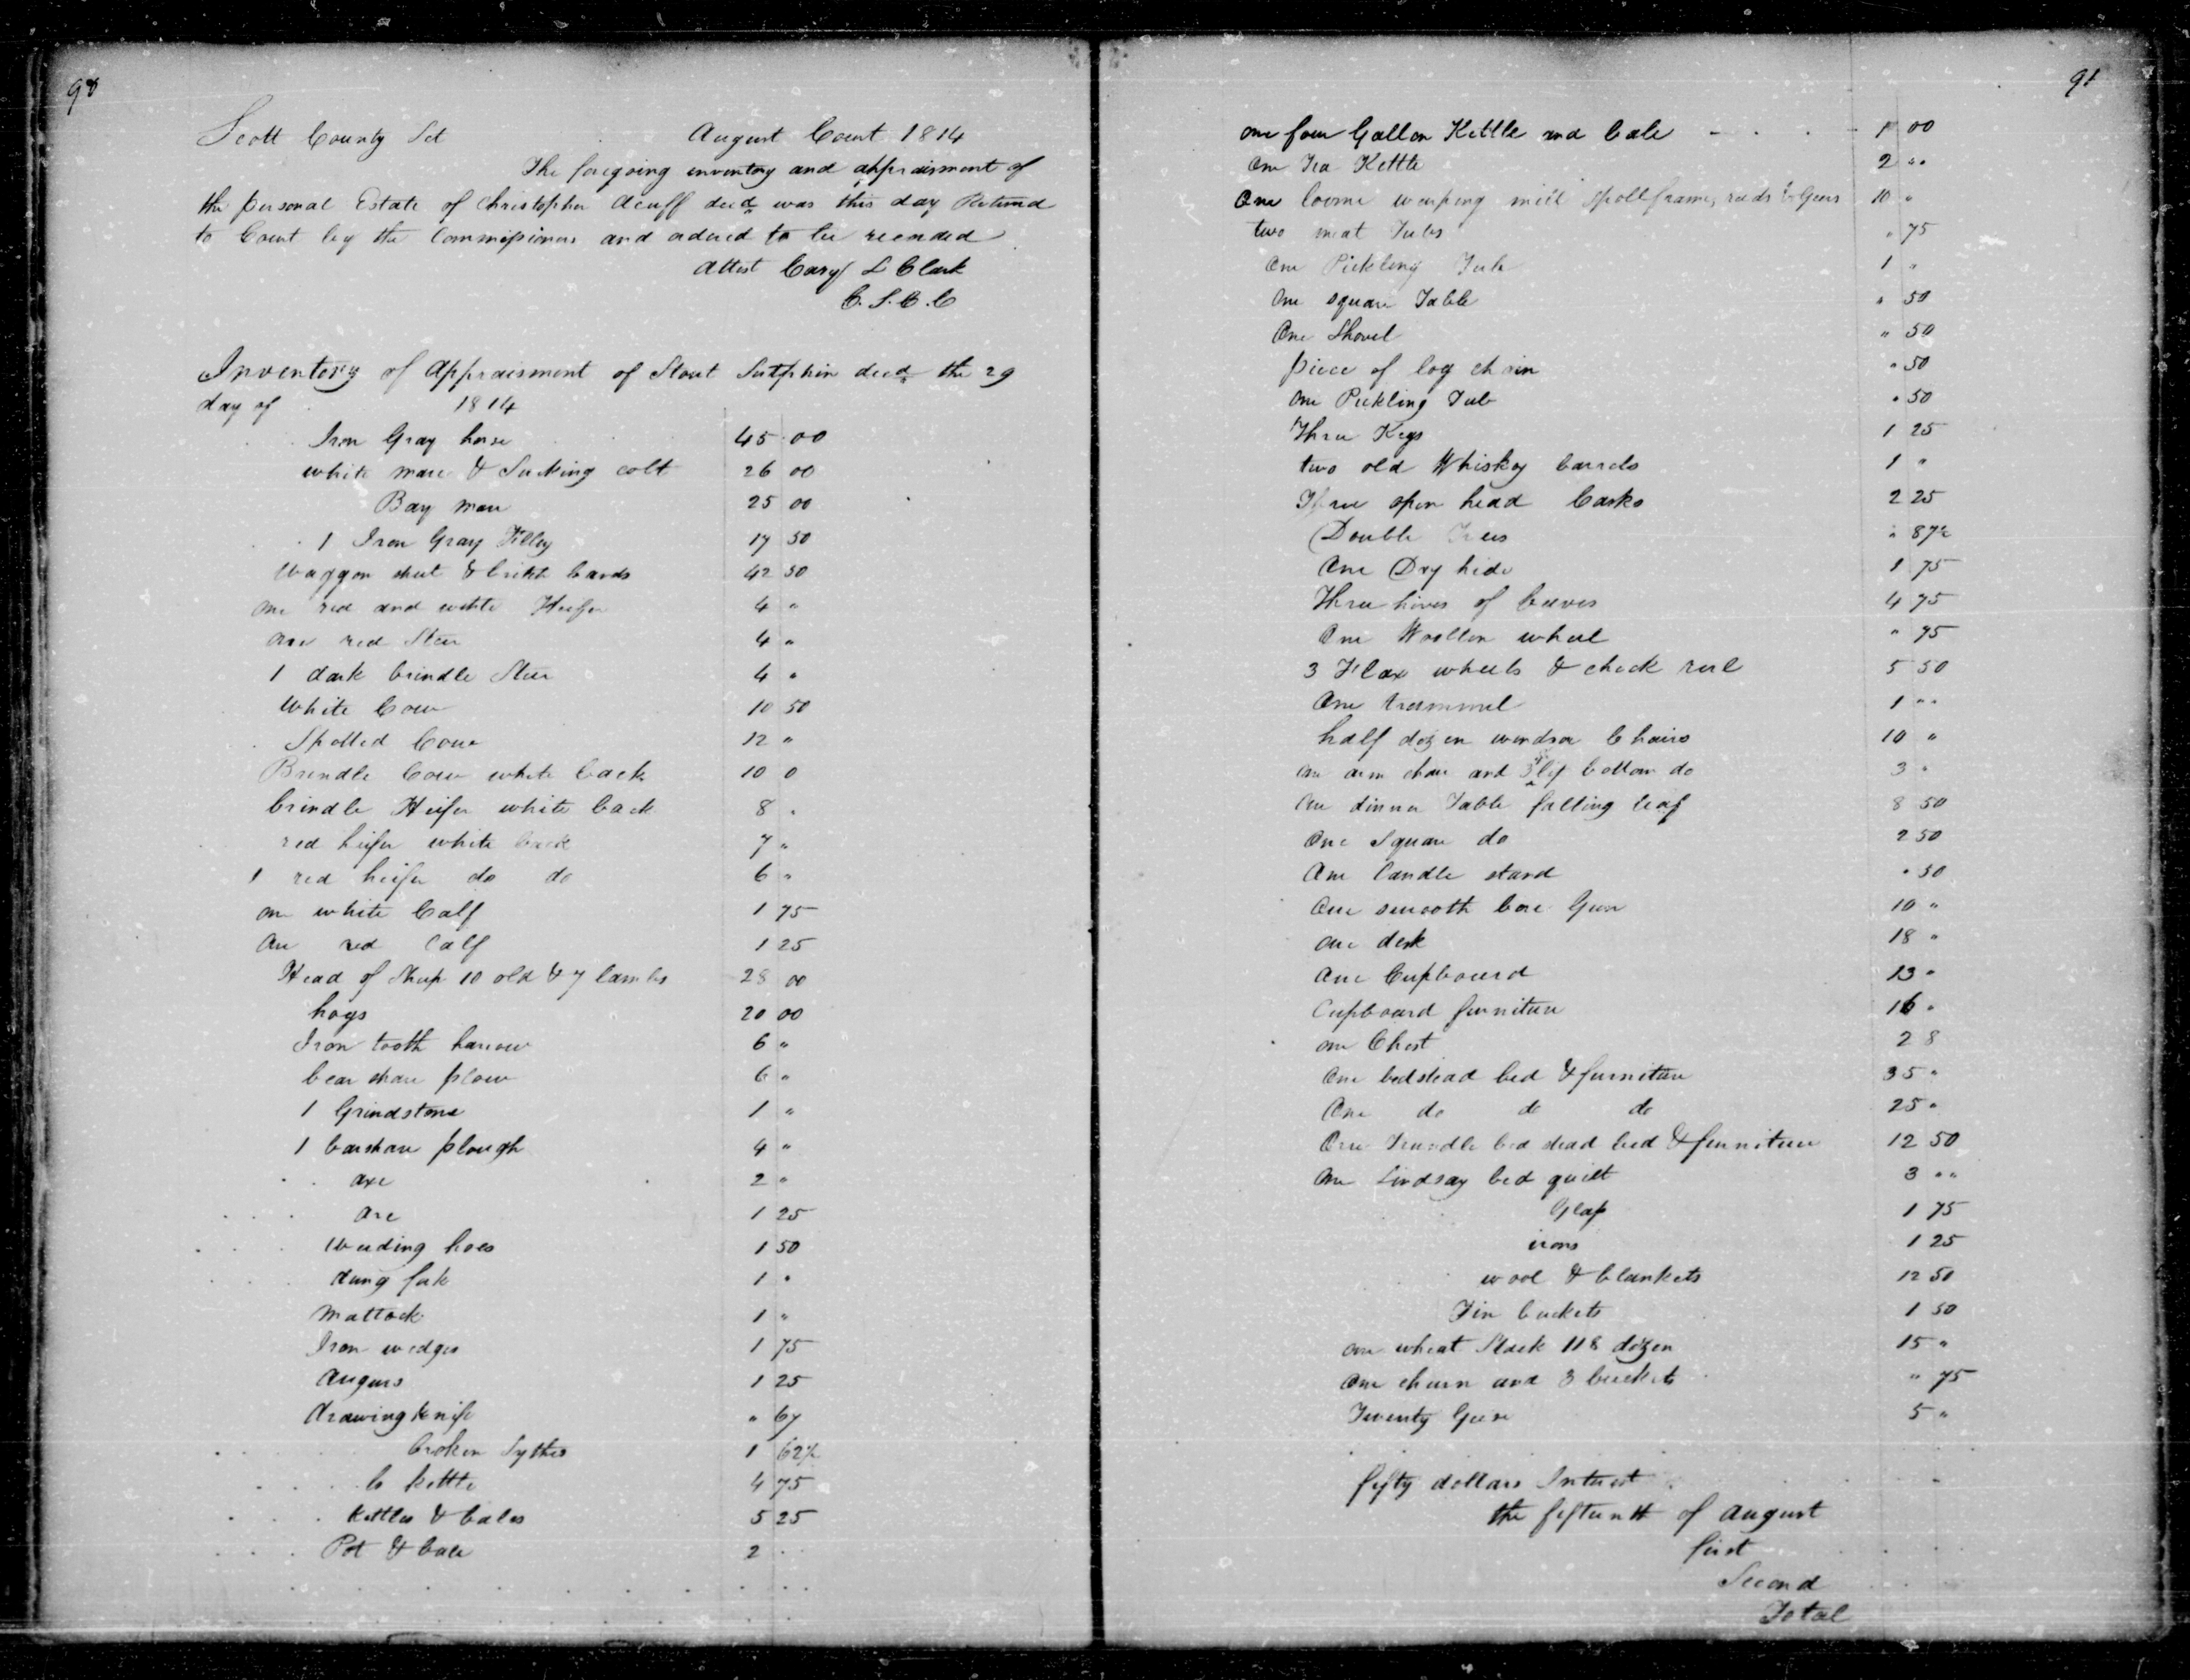 90
Scott County Sct August Court 1814
The foregoing inventory and appraisment of
the personal Estate of Christopher Acuff decd was this day Returnd
to Court by the Commissioners and ordered to be recorded
Attest Cary L Clark
C. S. C. C
Inventory of Appraisment of Stout Sutphin decd the 29
day of 1814
Iron Gray horse 45 00
white mare & Sucking colt 26 00
Bay mare 25 00
1 Iron Gray Filley 17 50
Waggon sheet & bands 42 50
one red and white Heifer 4 "
one red Steer 4 "
1 dark brindle Steer 4 "
White Cow 10 50
Spotted Cow 12 "
Brindle Cow white back 10 0
brindle Heifer white back 8 "
red heifer white back 7 "
1 red heifer do do 6 "
one white Calf 1 75
One red Calf 1 25
Head of Sheep 10 old & 7 lambs 28 00
hogs 20 00
Iron tooth harrow 6 "
bear share plow 6 "
1 Grindstone 1 "
1 barshare plough 4 "
axe 2 "
axe 1 25
Weeding hoes 1 50
dung fork 1 "
Mattock 1 "
Iron wedges 1 75
Augurs 1 25
drawing knife " 67
broken Sythes 1 62½
kettle 4 75
kettles & bales 5 25
Pot & bale 2
91
one four Gallon Kettle and bale 1 00
One Tea Kettle 2 "
One loome warping mill Spoll frame, reeds & Gears 10 "
two meat Tubs " 75
One Pickling Tub 1 "
One square Table " 50
One Shovel " 50
piece of log chain " 50
One Pickling Tub " 50
Three Kegs 1 25
two old Whiskey barrels 1 "
Three open head Casks 2 25
Double Trees " 87½
One Dry hide 1 75
Three hives of beaves 4 75
One Woollen wheel " 75
3 Flax wheels & check reel 5 50
One trammel 1 "
half dozen windsor Chairs 10 "
one arm chair and 3 bottom do 3 "
One dinner Table falling leaf 8 50
One Square do 2 50
One Candle stand " 50
One smooth bore Gun 10 "
one desk 18 "
One Cupboard 13 "
Cupboard furniture 16 "
one Chest 2 8
One bedstead bed & furniture 35 "
One do do do 25 "
One Trundle bed stead bed & furniture 12 50
One Lindsay bed quilt 3 "
Glass 1 75
irons 1 25
wool & blankets 12 50
Tin buckets 1 50
one wheat Stack 118 dozen 15 "
One churn and 3 buckets " 75
Twenty Geese 5 "
fifty dollars Interest
the fifteenth of August
first
Second
Total